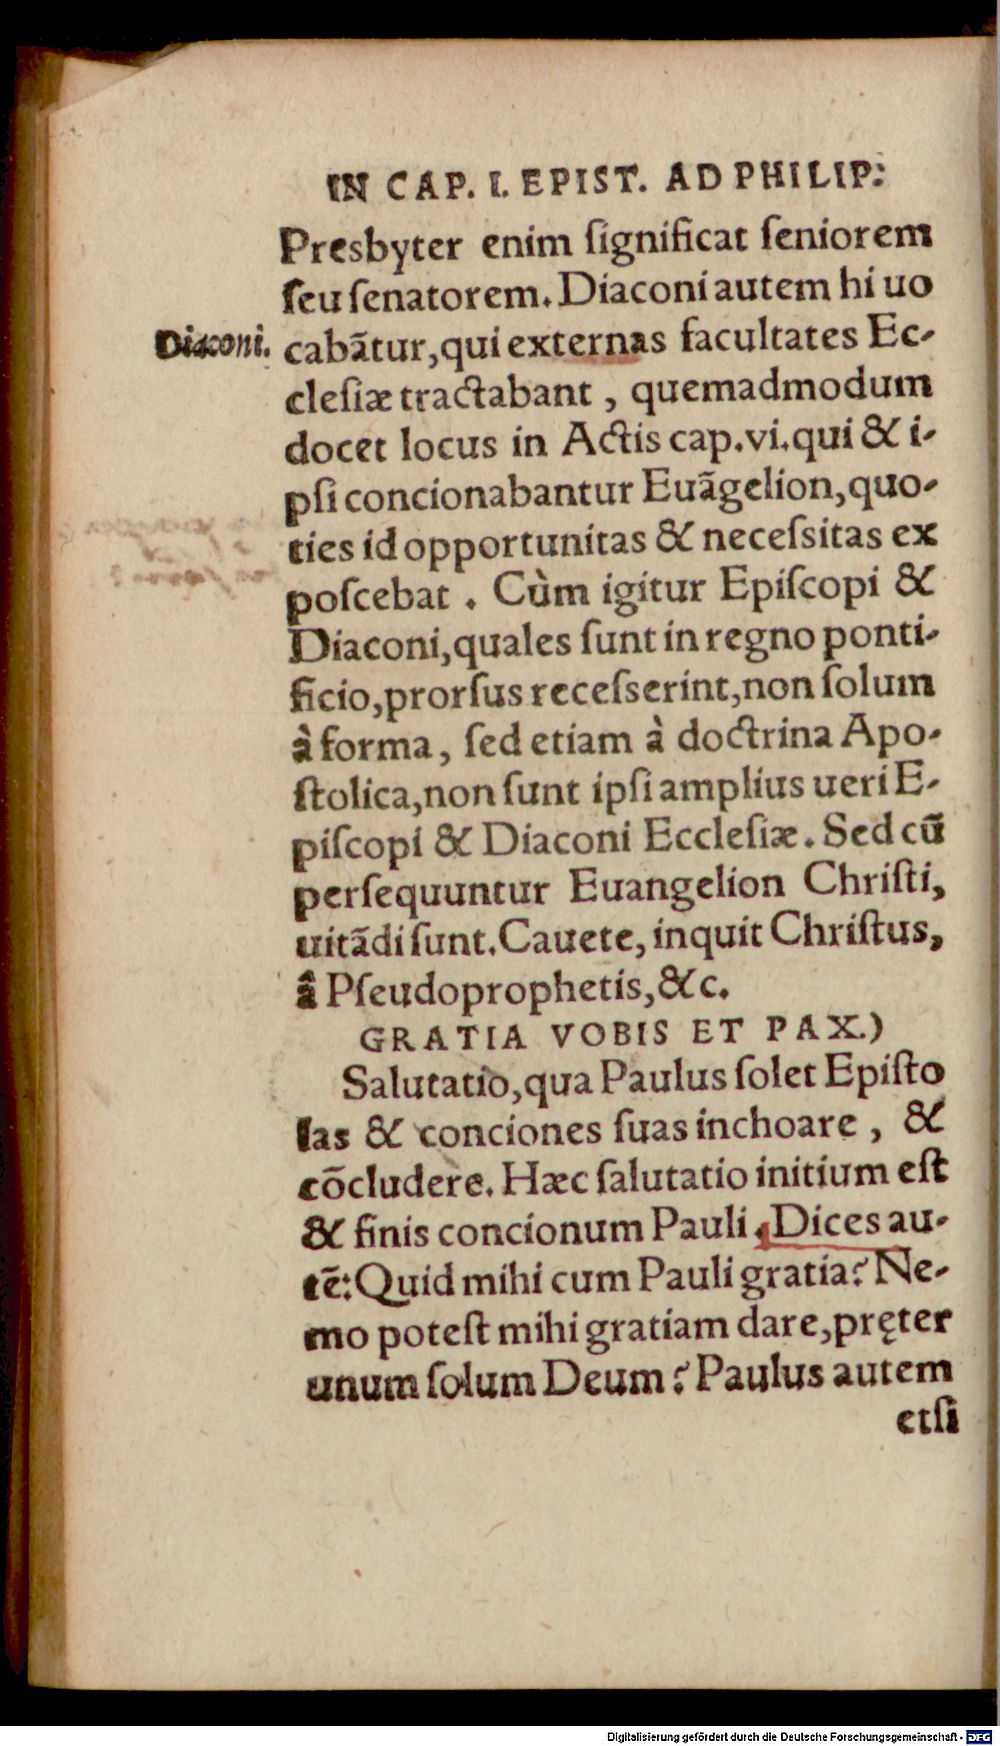 IN CAP. I. EPIST. AD PHILIP:
Presbyter enim ſignificat ſeniorem
ſeu ſenatorem. Diaconi autem hi uo
Diaconi.
cabãtur, qui externas facultates Ec-
cleſiæ tractabant , quemadmodum
docet locus in Actis cap.vi.qui & i-
pſi concionabantur Euãgelion, quo-
ties id opportunitas & neceſsitas ex
poſcebat . Cùm igitur Epiſcopi &
Diaconi, quales ſunt in regno ponti-
ficio, prorſus receſserint, non ſolum
à forma, ſed etiam à doctrina Apo-
ſtolica, non ſunt ipſi amplius ueri E-
piſcopi & Diaconi Eccleſiæ. Sed cũ
perſequuntur Euangelion Chriſti,
uitãdi ſunt. Cauete, inquit Chriſtus,
â Pſeudoprophetis, &c.
GRATIA VOBIS ET PAX.)
Salutatio, qua Paulus ſolet Epiſto
las & conciones ſuas inchoare , &
cõcludere. Hæc ſalutatio initium eſt
& finis concionum Pauli. Dices au-
tẽ: Quid mihi cum Pauli gratia? Ne-
mo poteſt mihi gratiam dare, pręter
unum ſolum Deum? Paulus autem
etſi
Digitalisierung gefördert durch die Deutsche Forschungsgemeinschaft - DFG